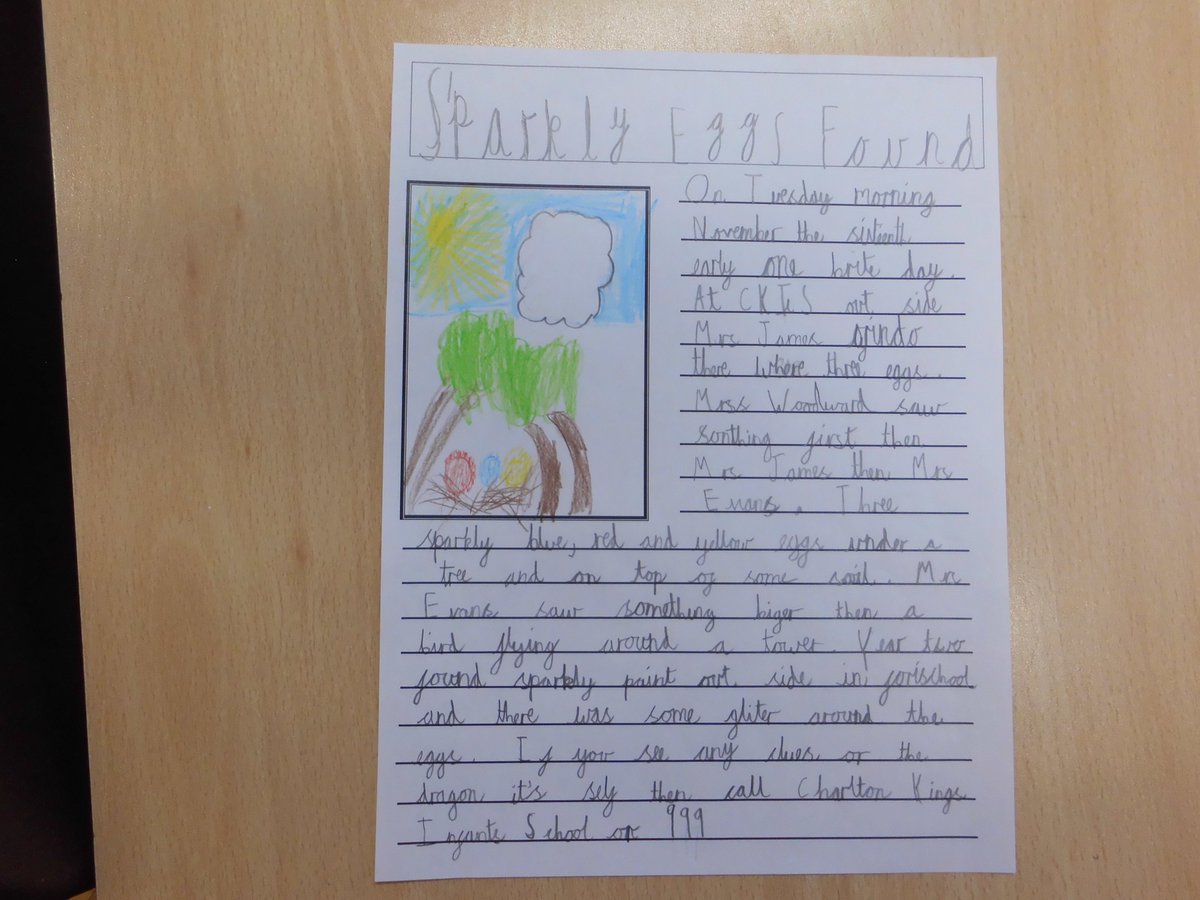 Sparkly Eggs Found
On Tuesday morning
November the sixteenth
early one brite day.
At CKIS out side
Mrs James
there where three eggs.
Mrss Woodward saw
sonthing first then
Mrs James then Mrs
Evans. Three
sparkly blue, red and yellow eggs under a
tree and on top of some soil. Mrs
Evans saw something biger then a
bird flying around a tower. Year two
found sparkly paint out side in
and there was some gliter around the
eggs. If you see any clues or the
dragon it's self then call Charlton Kings
Infants School on 999